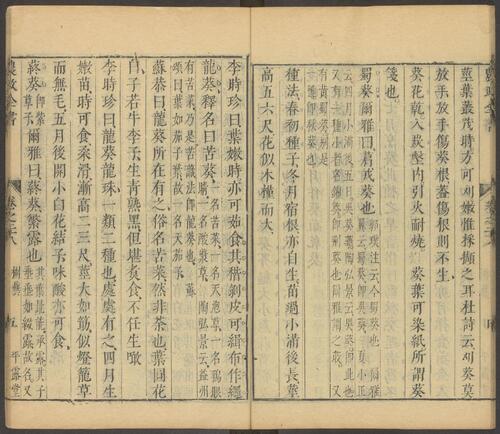 莖葉叢茂時方可刈嫩惟採擷之耳杜詩云刈葵莫
放手放手傷葵根葢傷根則不生
葵花乾入炭墼內引火耐燒 葵葉可染紙所謂葵
箋也
蜀葵爾雅曰菺戎葵也 郭璞注云今蜀葵也
種法春初種子冬月宿根亦自生苗過小滿後長莖
高五六尺花似木槿而大
李時珍曰葉嫩時亦可茹食其稭剝皮可緝布作繩
龍葵釋名曰苦葵 一名苦菜一名天泡草一名鴉眼睛一名酸漿草 陶弘景云益州
有苦菜乃是苦蘵 蘇頌曰葉如茄子葉故一名天茄子
蘇恭曰龍葵所在有之俗名苦菜然非荼也葉圓花
白子若牛李子生青熟黑但堪煮食不任生噉
李時珍曰龍葵龍珠一類二種也處處有之四月生
嫩苗時可食柔滑漸高二三尺莖大如筯似燈籠草
而無毛五月後開小白花結子味酸亦可食
蔠葵 爾雅曰蔠葵蘩露也 其葉最能承露其子垂垂如綴露故名又
農政全書 卷之二十八 樹藝 五 平露堂